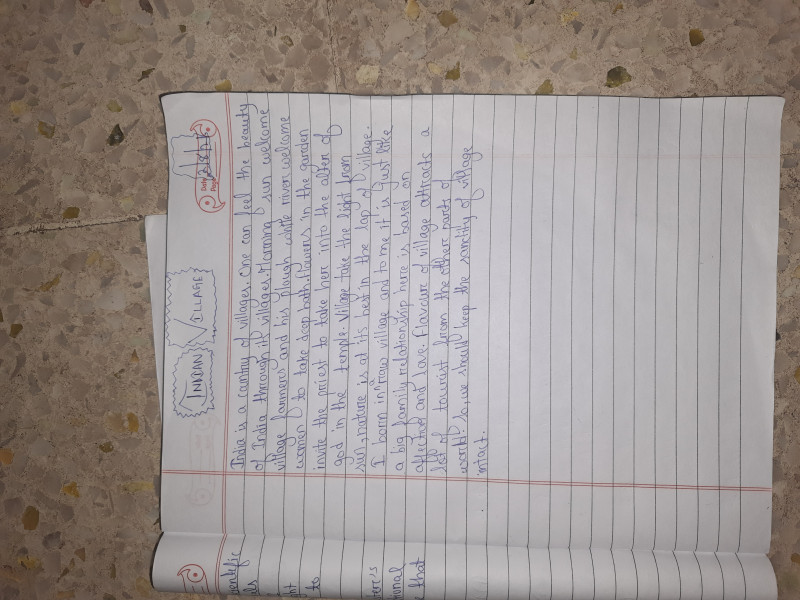 INDIAN VILLAGE
India is a cantry of villages. One can feel the beauty
of India through it villages. Morning sun welcome
village farmers and his plough while river welcome
women to take deep bath. Flowers in the garden
invite the priest to take here into the alter of
god in the temple. Village take the light from
sun, nature is at its best in the lap of village.
I born in village and to me it is just like
a big family relationship here is based on
affection and love. Flavour of village attracts a
lot of tourist from the other parts of
world. So we should keep the sanctity of village
intact.
entific
ht
to
ere's
ional
that